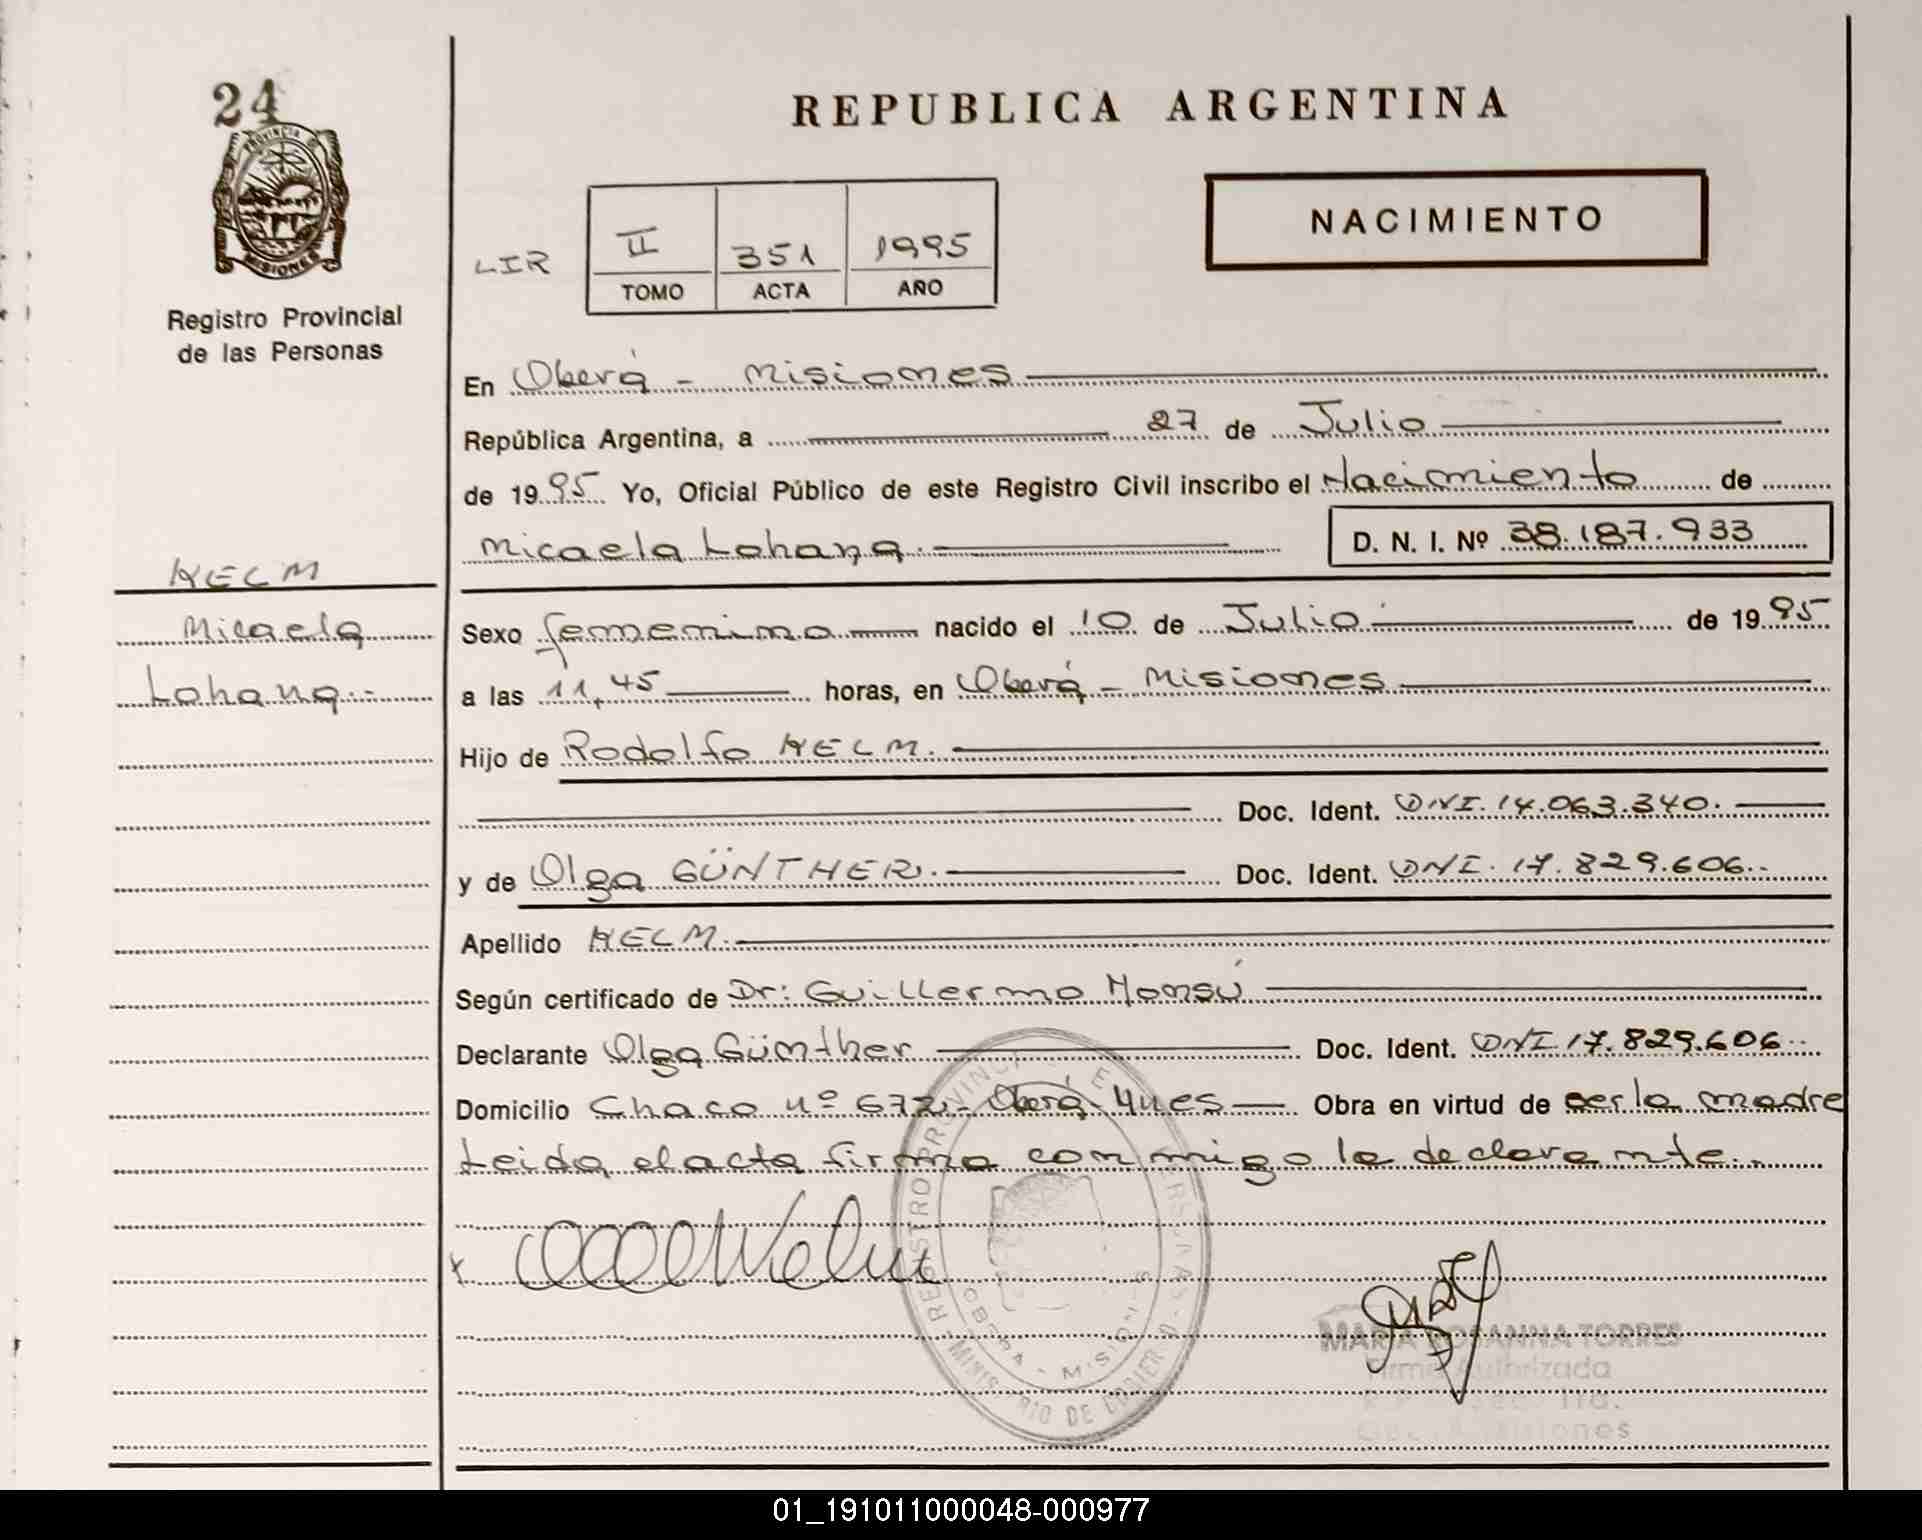 24
PROVINCIA DE
MISIONES
Registro Provincial
de las Personas
REPUBLICA ARGENTINA
NACIMIENTO
LIR
II 351 1995
TOMO ACTA AÑO
En Oberá - Misiones
República Argentina, a 27 de Julio
de 1995 Yo, Oficial Público de este Registro Civil inscribo el Nacimiento de
Micaela Lohana.- D. N. I. Nº 38.187.933
HELM
Micaela
Lohana.-
Sexo femenino nacido el 10 de Julio de 1995
a las 11,45 horas, en Oberá - Misiones
Hijo de Rodolfo HELM.
Doc. Ident. DNI. 14.063.340.
y de Olga GÜNTHER. Doc. Ident. DNI. 17.829.606.-
Apellido HELM.
Según certificado de Dr: Guillermo Monsú
Declarante Olga Günther Doc. Ident. DNI 17.829.606.-
Domicilio Chaco nº 672 - Oberá - Mnes Obra en virtud de ser la madre
Leida el acta firma conmigo la declarante.-
REGISTRO PROVINCIAL DE
OBERA - MISIONES
MARIA ROSANNA TORRES
Firma Autorizada
01_191011000048-000977